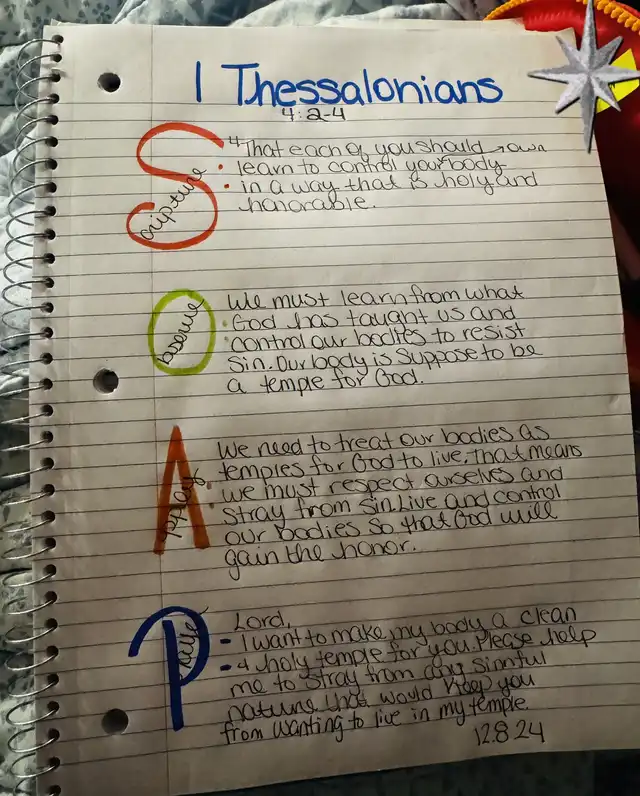 1 Thessalonians
4:2-4
Scripture:
4 That each of you should → own
learn to control your body
in a way that is holy and
honorable.
Observe:
We must learn from what
God has taught us and
control our bodies to resist
sin. Our body is suppose to be
a temple for God.
Apply:
We need to treat our bodies as
temples for God to live. That means
we must respect ourselves and
stray from sin. Live and control
our bodies so that God will
gain the honor.
Prayer
Lord,
I want to make my body a clean
+ holy temple for you. Please help
me to stray from any sinnful
nature that would keep you
from wanting to live in my temple.
12.8.24